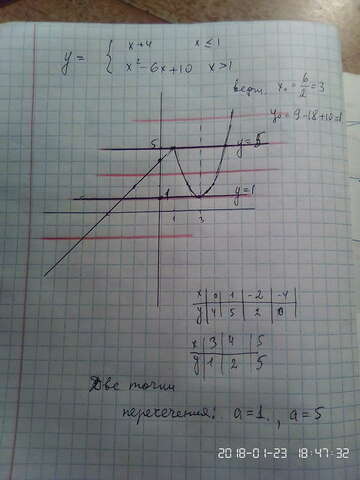 y = { x+4 x ≤ 1
x²-6x+10 x > 1
верш. x₀ = 6/2 = 3
y₀ = 9-18+10=1
5
y=5
1
y=1
1 3
x | 0 | 1 | -2 | -4
y | 4 | 5 | 2 | 0
x | 3 | 4 | 5
y | 1 | 2 | 5
Две точки
пересечения: a=1, a=5
2018-01-23 18:47:32